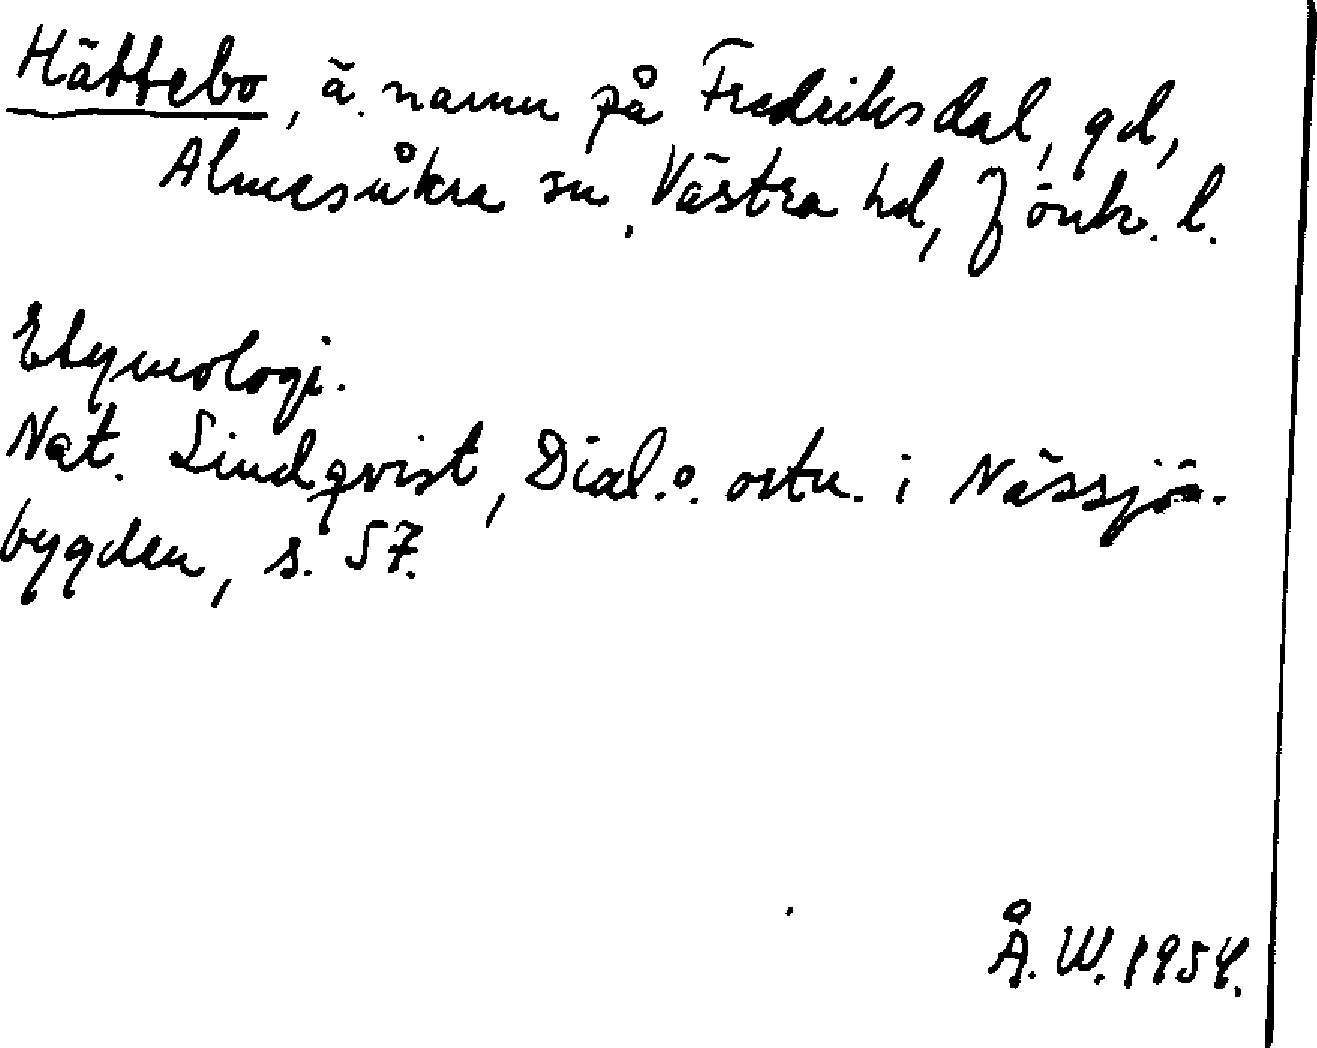 Hättebo, ä. namn på Fredriksdal, gd,
Almesåkra sn, Västra hd, Jönk. l.
Etymologi.
Nat. Lindqvist, Dial. o. ortn. i Nässjö-
bygden, s. 57.
Å. W. 1954.